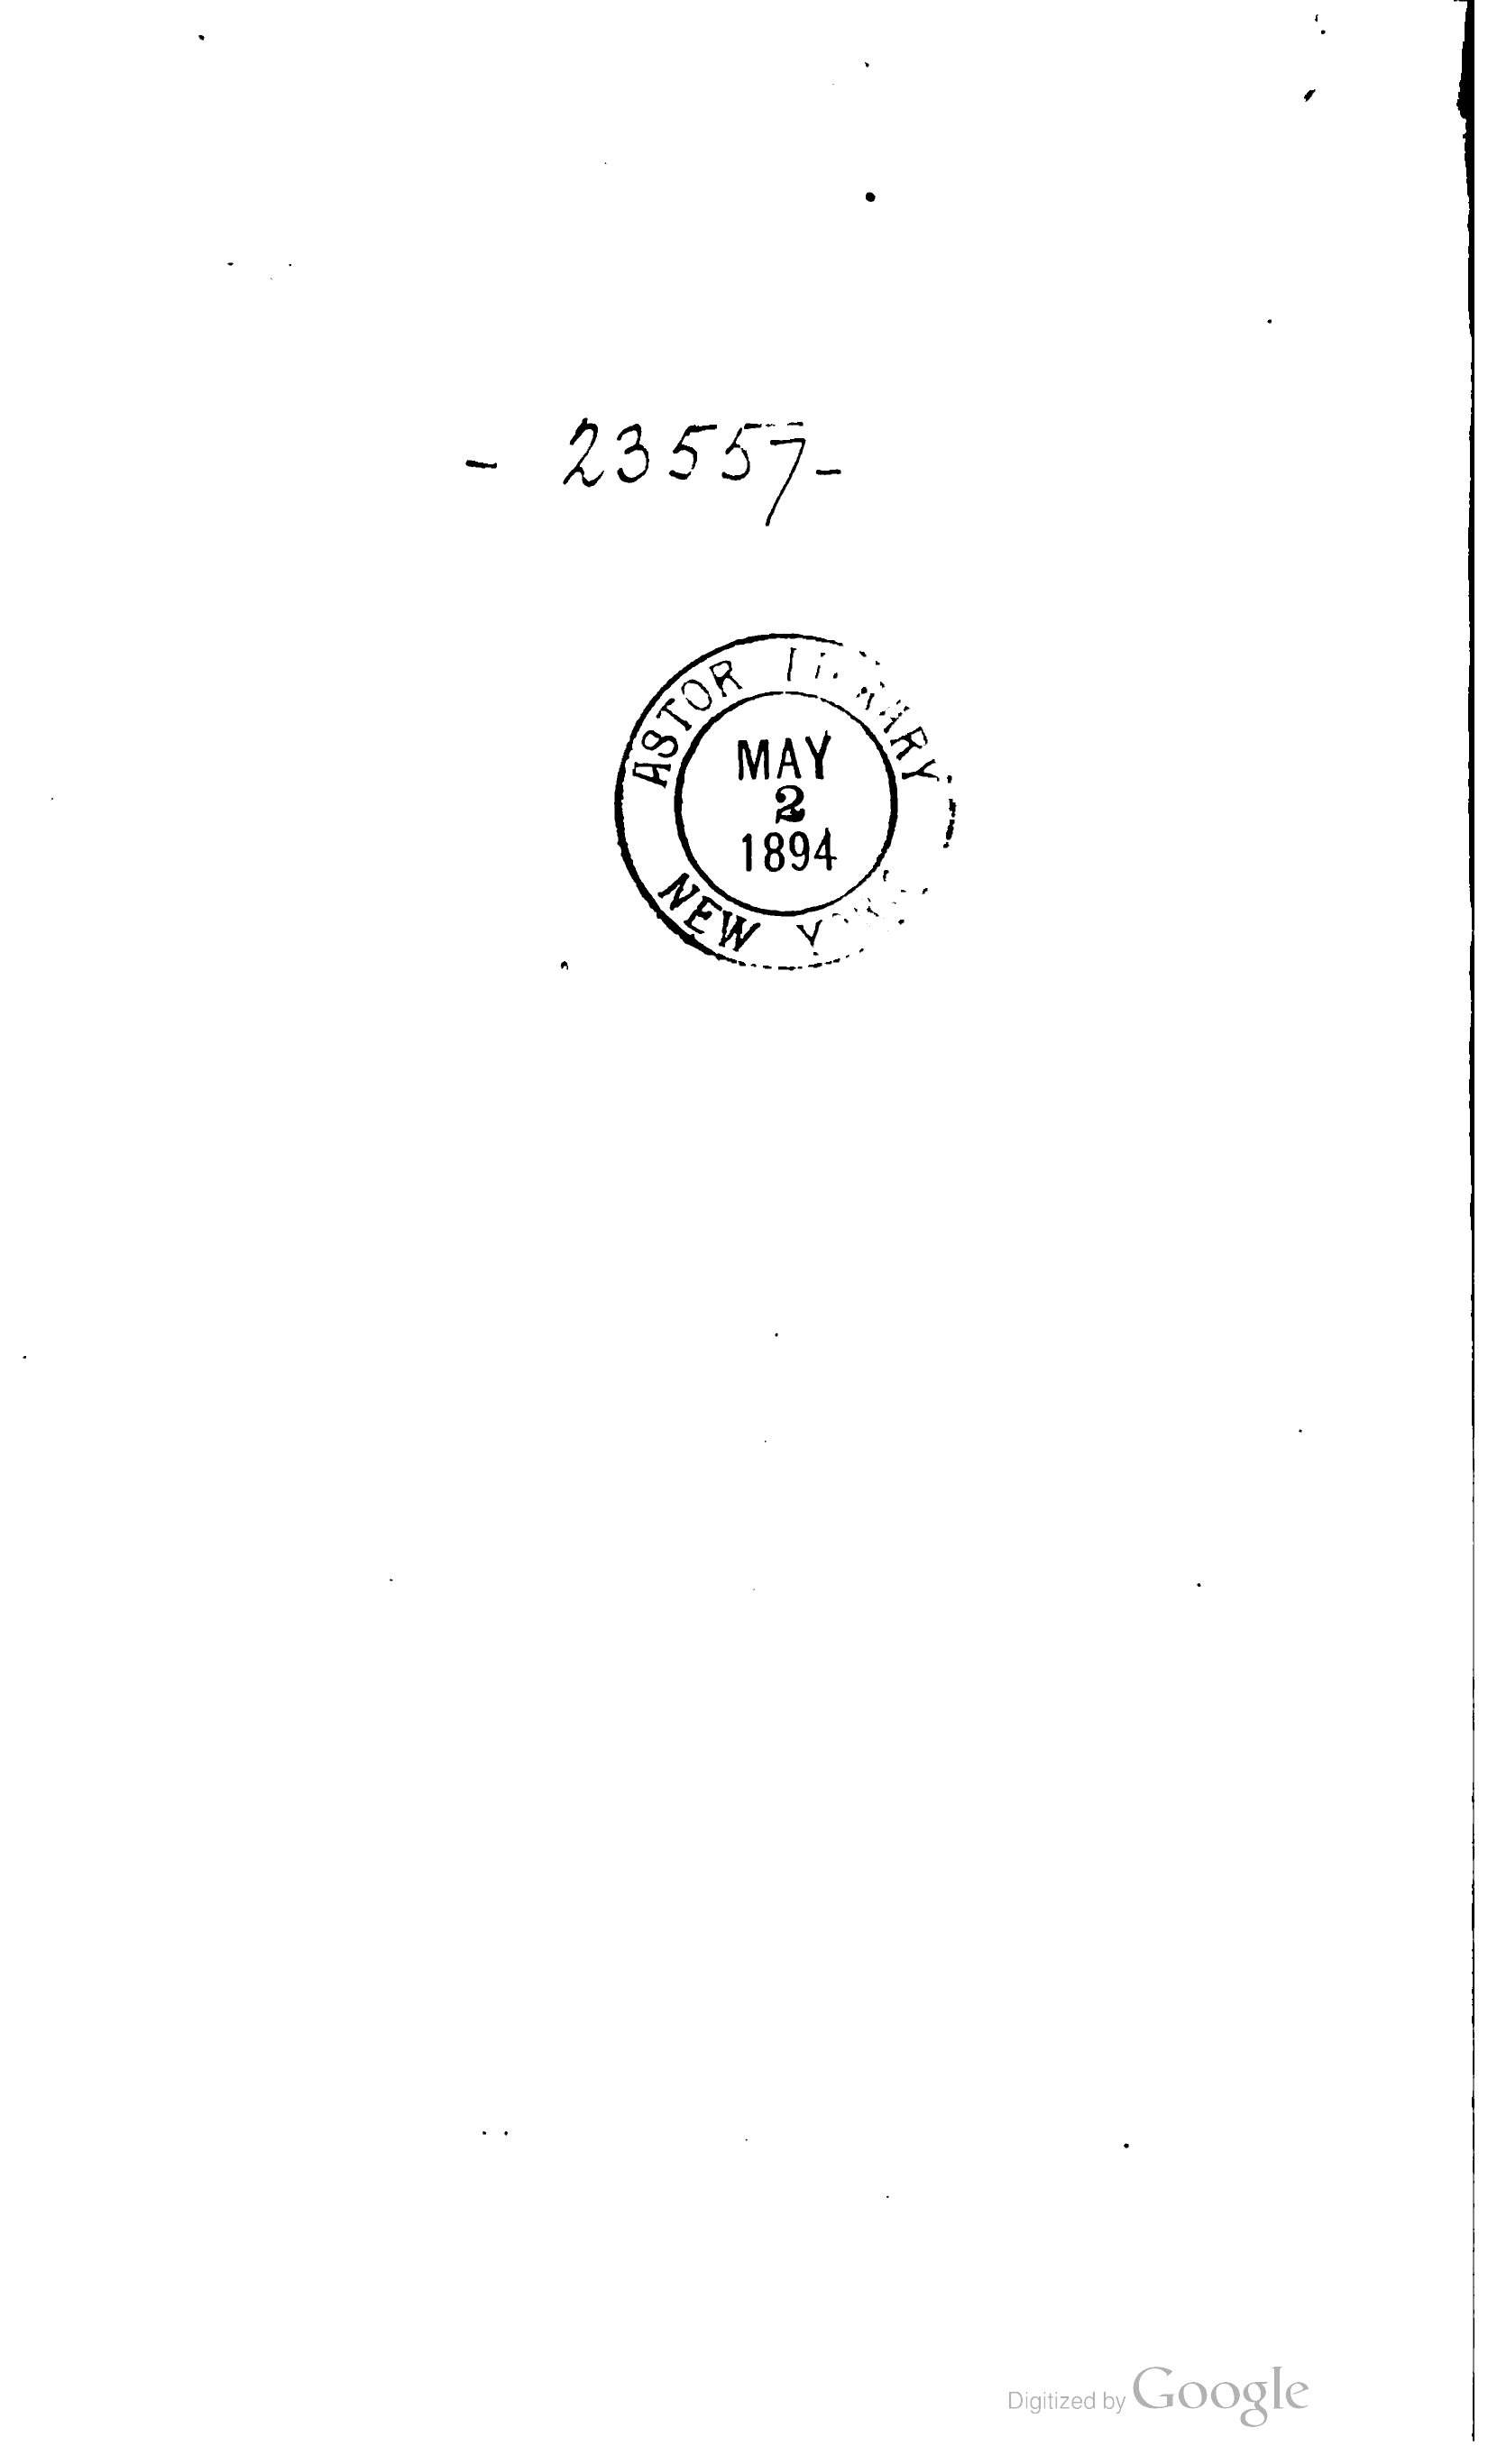 - 23557-
ASTOR LIBRARY
MAY
2
1894
NEW YORK
Digitized by Google